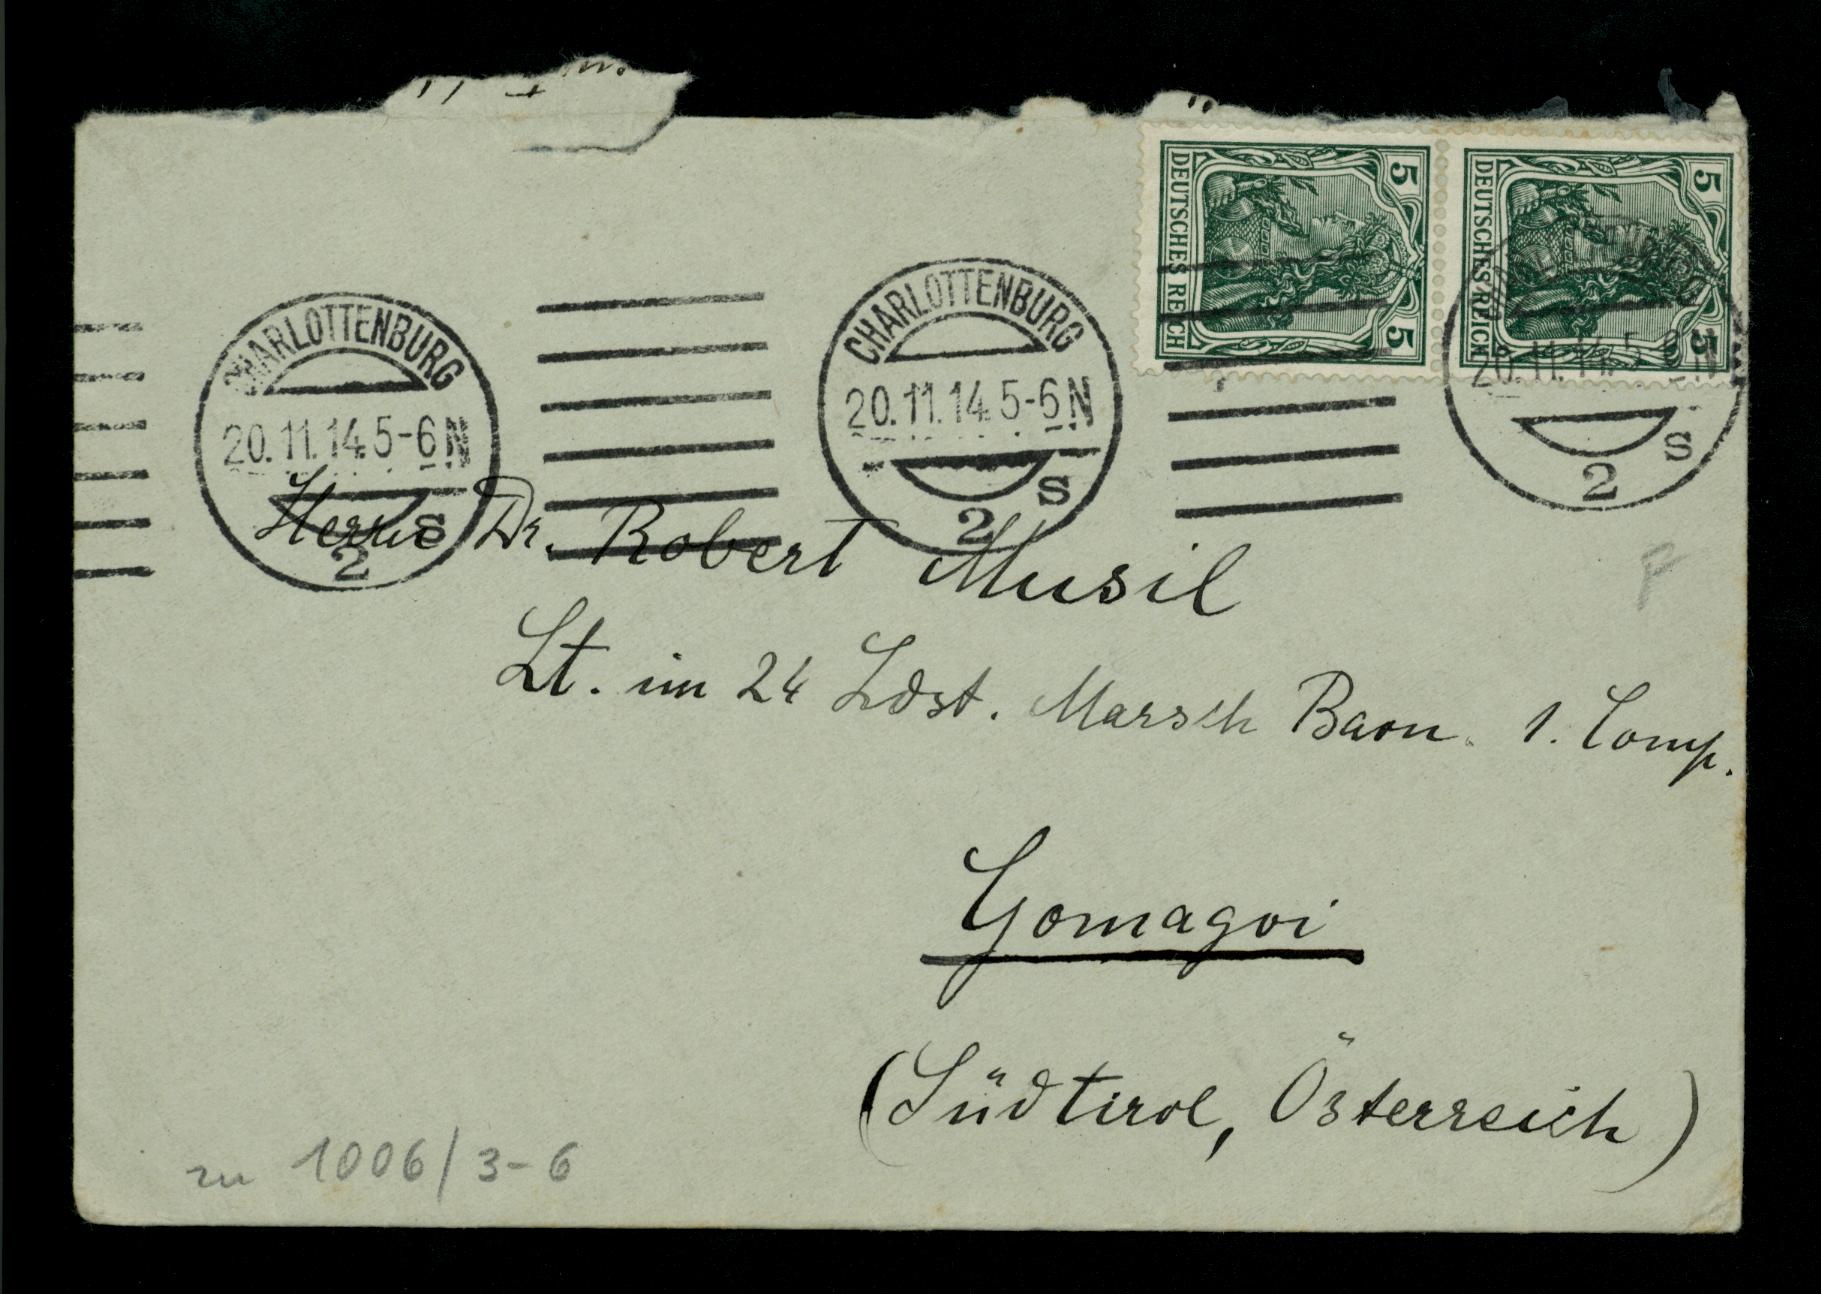 5 5
DEUTSCHES REICH
5 5
DEUTSCHES REICH
CHARLOTTENBURG
20.11.14.5-6N
2 s
CHARLOTTENBURG
20.11.14.5-6N
2 s
20.11.14.5-6N
2 s
Herrn Dr. Robert Musil
Lt. im 24 Ldst. Marsch Baon. 1. Comp.
Gomagoi
(Südtirol, Österreich)
zu 1006/3-6